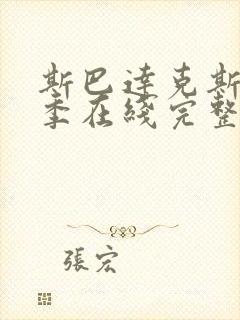 斯巴達克斯
季在綫完整
張宏